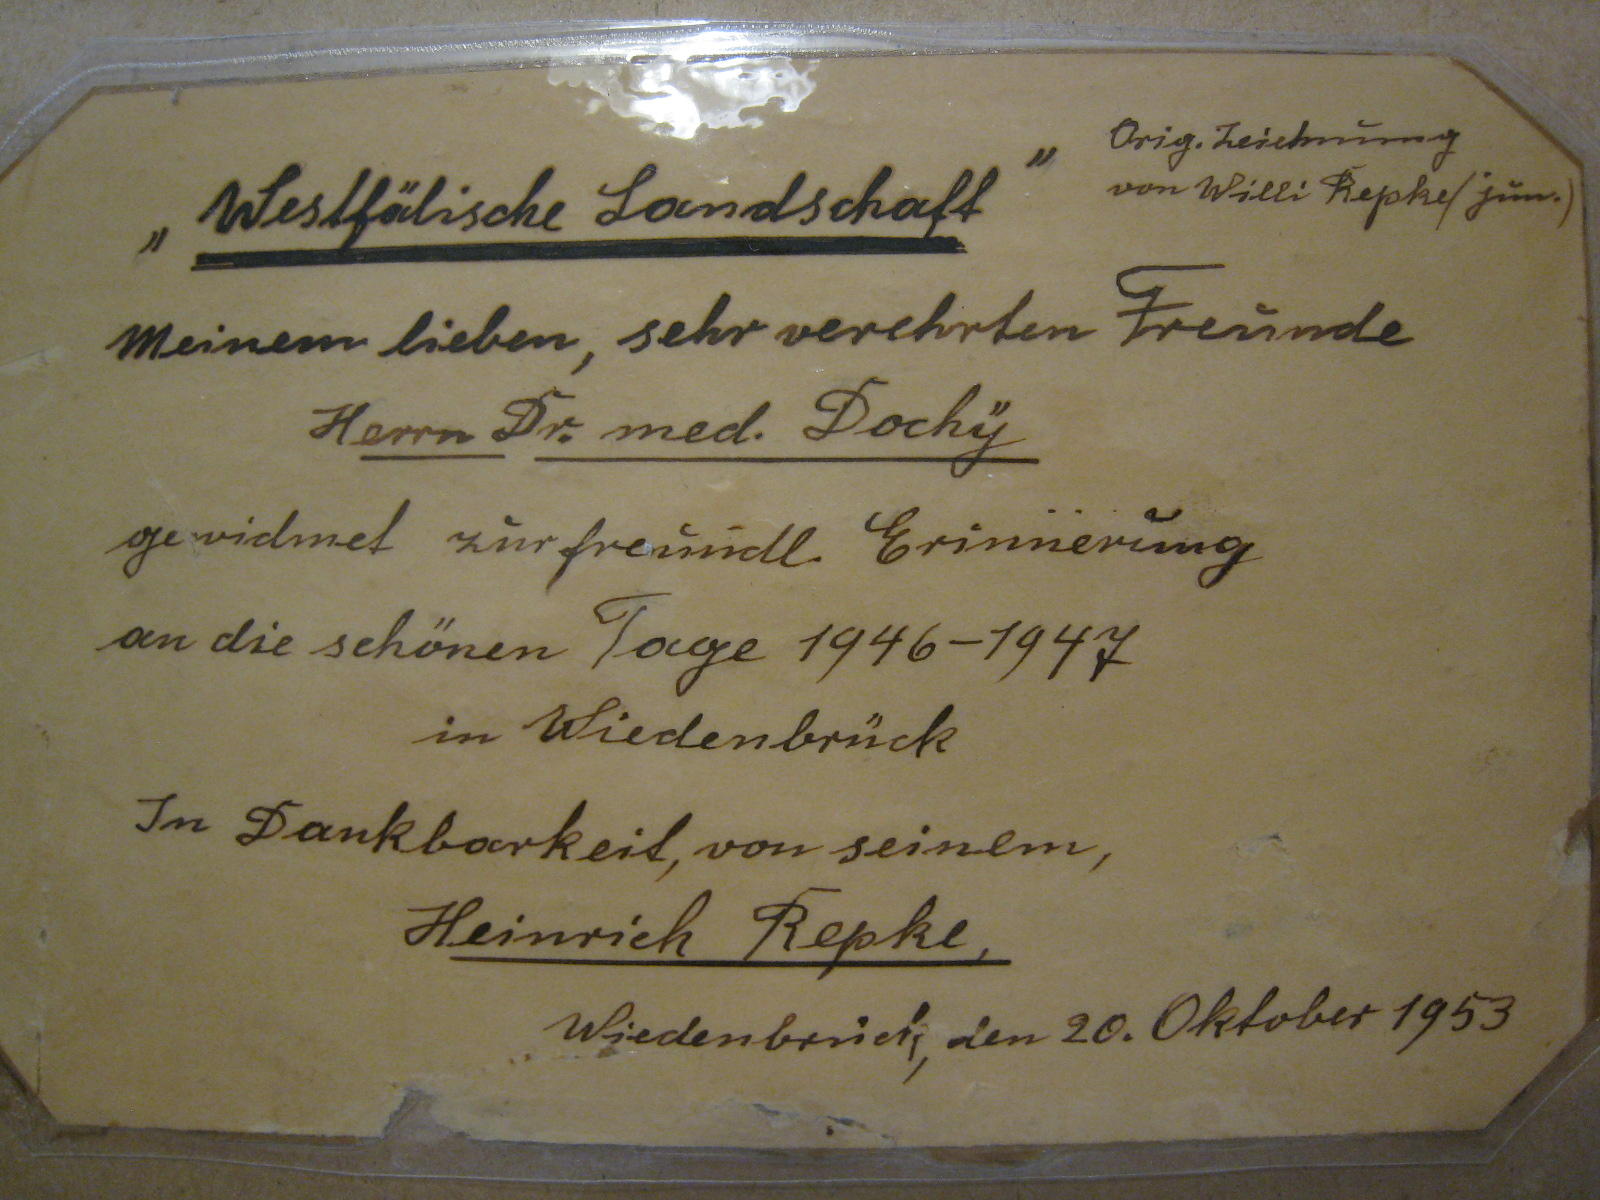 „Westfälische Landschaft"
Orig. Zeichnung
von Willi Repke (jun.)
Meinem lieben, sehr verehrten Freunde
Herrn Dr. med. Dochÿ
gewidmet zur freundl. Erinnerung
an die schönen Tage 1946-1947
in Wiedenbrück
In Dankbarkeit, von seinem,
Heinrich Repke,
Wiedenbrück, den 20. Oktober 1953